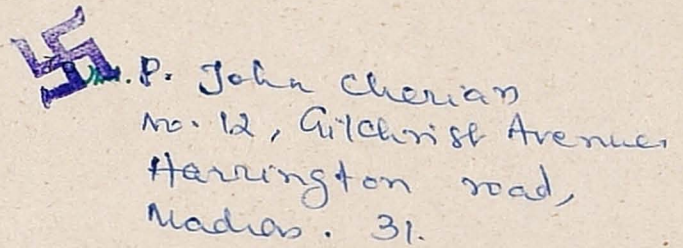 P. John Cherian
No. 12, Gilchrist Avenue,
Harrington road,
Madras. 31.